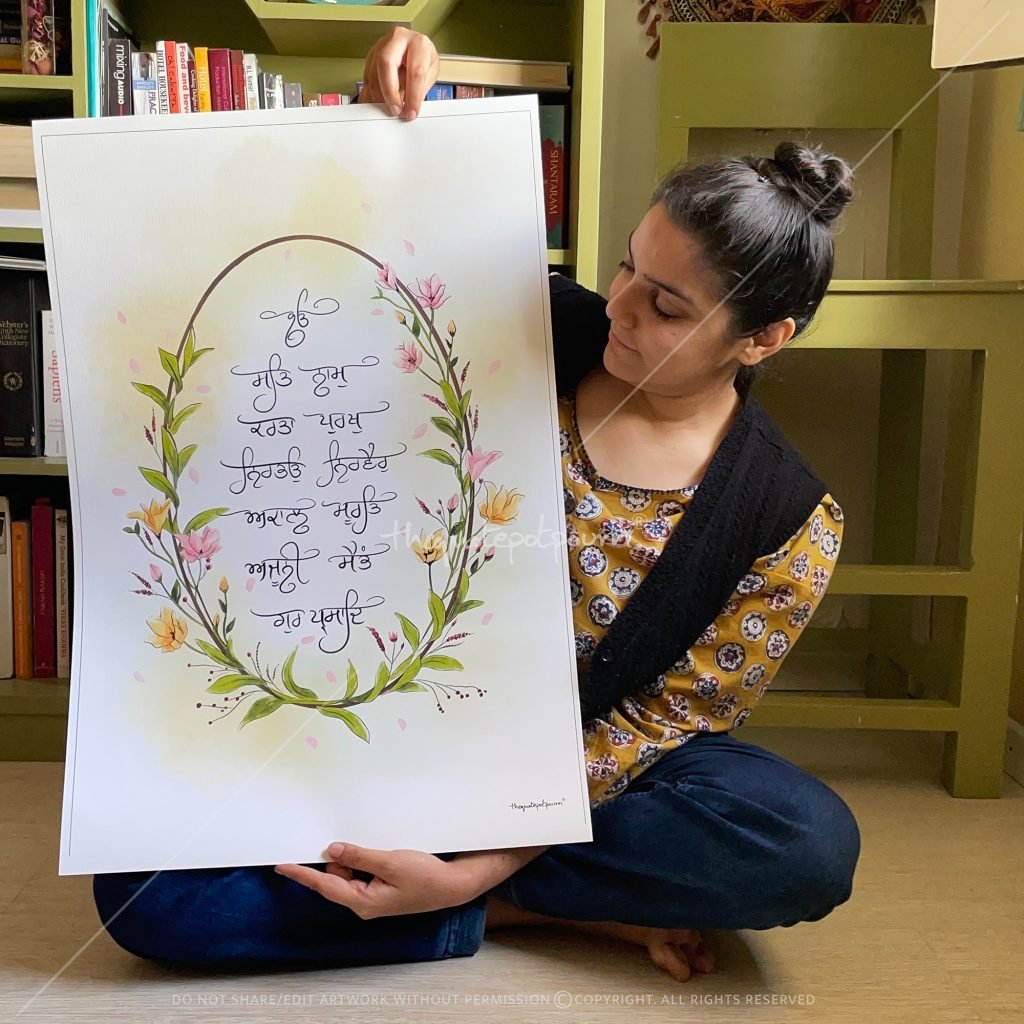 ੴ
ਸਤਿ ਨਾਮੁ
ਕਰਤਾ ਪੁਰਖੁ
ਨਿਰਭਉ ਨਿਰਵੈਰੁ
ਅਕਾਲ ਮੂਰਤਿ
ਅਜੂਨੀ ਸੈਭੰ
ਗੁਰ ਪ੍ਰਸਾਦਿ
thequotepotpourri®
thequotepotpourri®
mixing AUDIO
HOTEL HOUSEKEE
Food and bev
SHANTARAM
Webster's
New
Collegiate
Dictionary
Sapiens
DO NOT SHARE/EDIT ARTWORK WITHOUT PERMISSION ©COPYRIGHT. ALL RIGHTS RESERVED